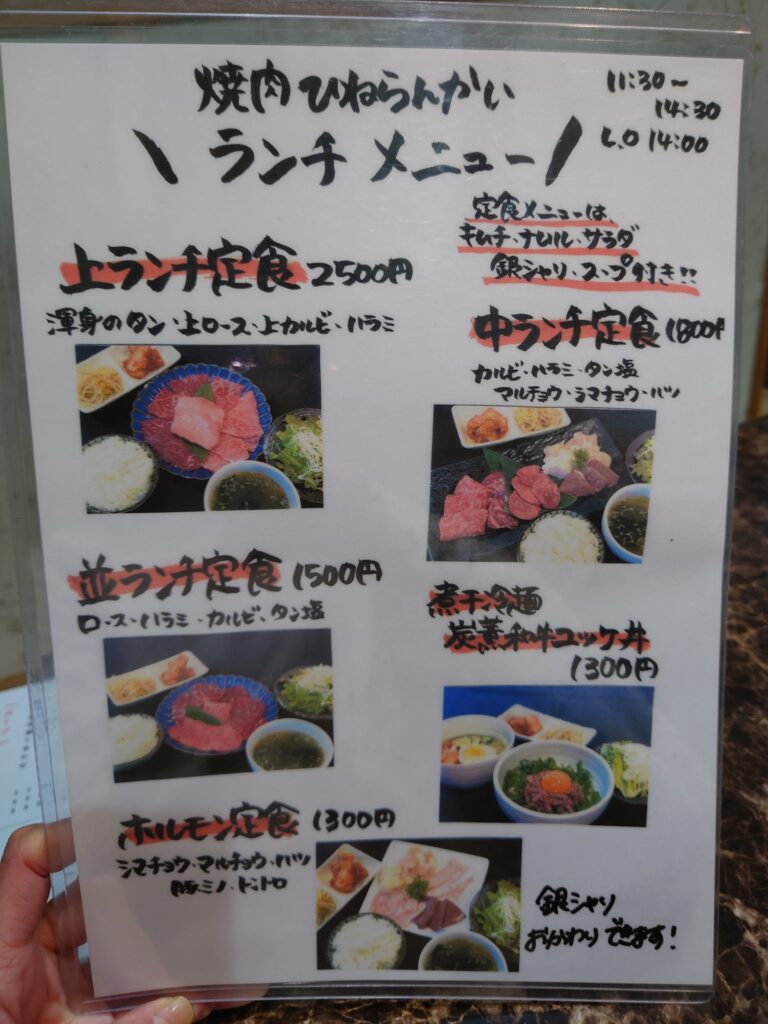 焼肉 ひねらんかい
ランチ メニュー
11:30〜
14:30
L.O 14:00
定食メニューは
キムチ・ナムル・サラダ
銀シャリ・スープ付き!!
上ランチ定食 2500円
渾身のタン・上ロース・上カルビ・ハラミ
中ランチ定食 1800円
カルビ・ハラミ・タン塩
マルチョウ・シマチョウ・ハツ
並ランチ定食 1500円
ロース・ハラミ・カルビ・タン塩
煮干冷麺
炭薫和牛ユッケ丼
1300円
ホルモン定食 1300円
シマチョウ・マルチョウ・ハツ
豚ミノ・トントロ
銀シャリ
おかわりできます!